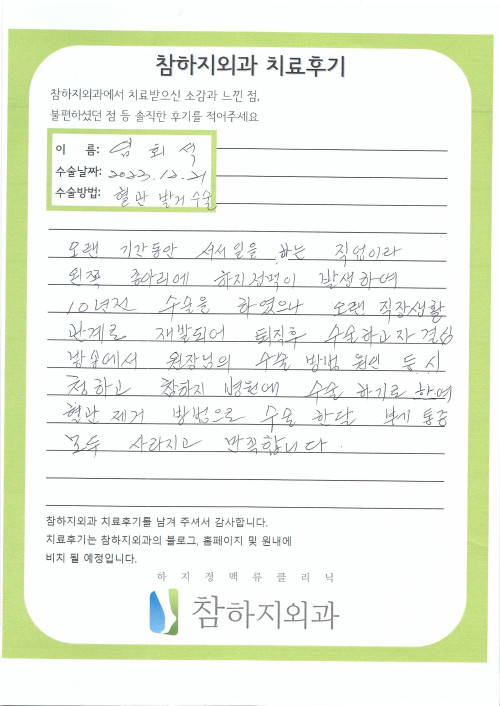 참하지외과 치료후기
참하지외과에서 치료받으신 소감과 느낀 점,
불편하셨던 점 등 솔직한 후기를 적어주세요
이 름: 염희석
수술날짜: 2023.12.21
수술방법: 혈관 발거 수술
오랜 기간동안 서서 일을 하는 직업이라
왼쪽 종아리에 하지정맥이 발생하여
10년전 수술을 하였으나 오랜 직장생활
관계로 재발되어 퇴직후 수술하고자 결심
방송에서 원장님의 수술 방법 원인 등 시
청하고 참하지 병원에 수술 하기로 하여
혈관 제거 방법으로 수술 한달 부기 통증
모두 사라지고 만족합니다.
참하지외과 치료후기를 남겨 주셔서 감사합니다.
치료후기는 참하지외과의 블로그, 홈페이지 및 원내에
비치 될 예정입니다.
하지정맥류클리닉
참하지외과